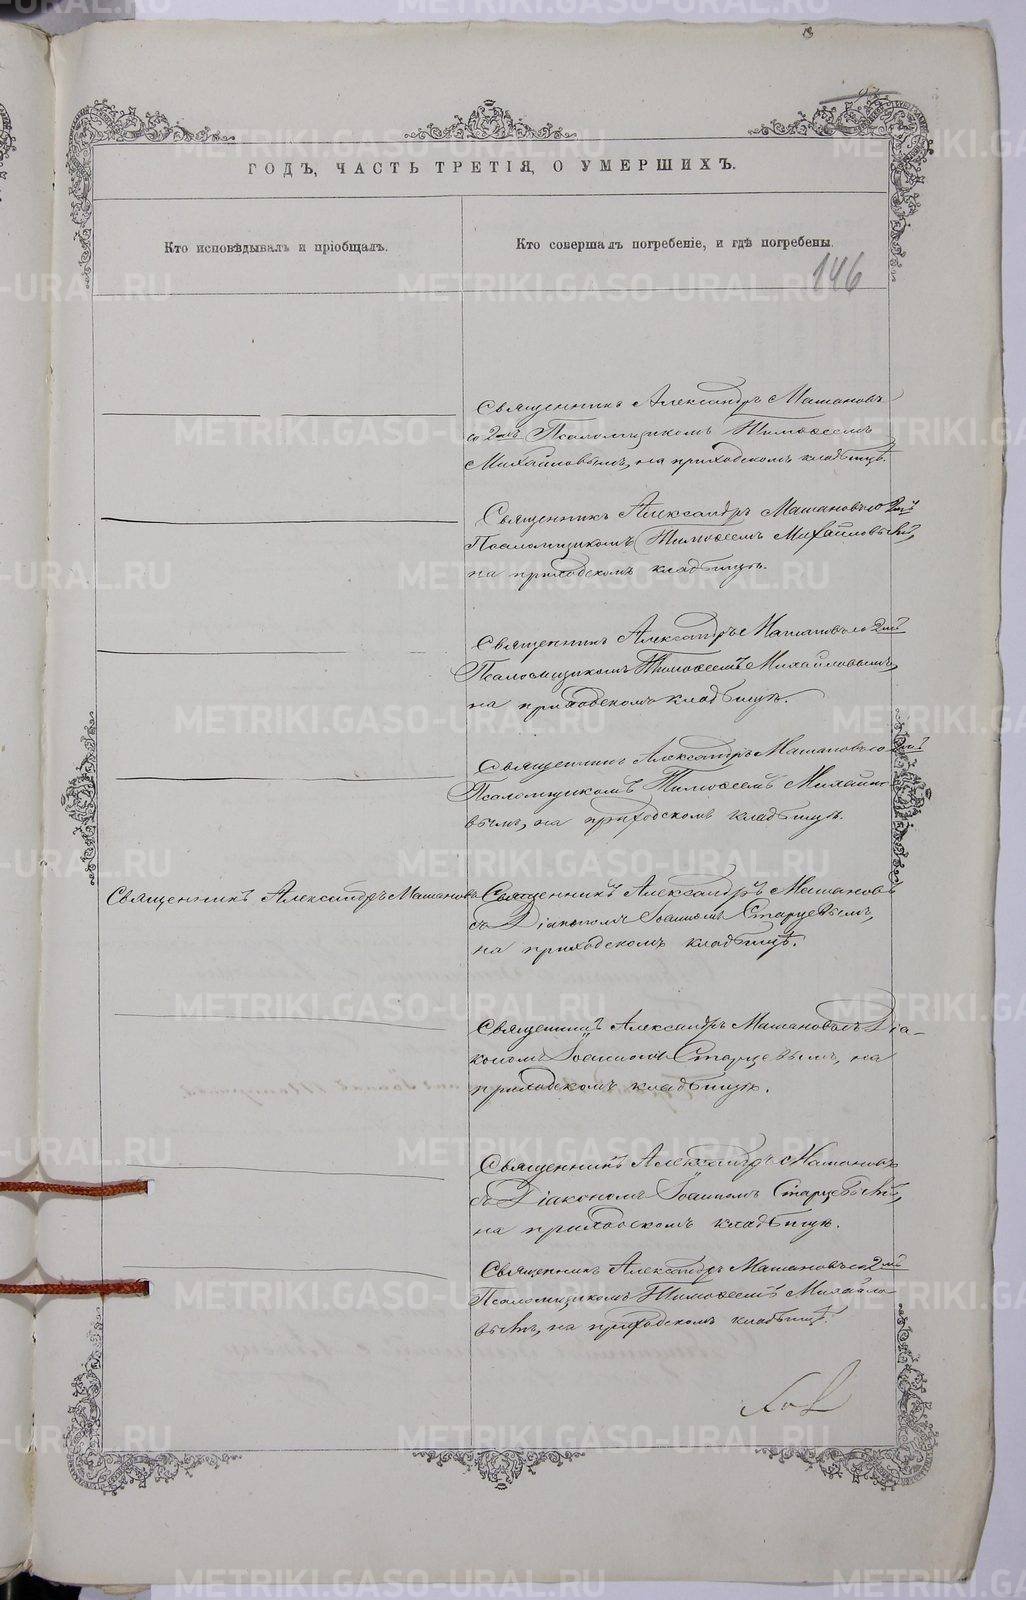 ГОДЪ, ЧАСТЬ ТРЕТІЯ, О УМЕРШИХЪ.
Кто исповѣдывалъ и пріобщалъ.
Кто совершалъ погребеніе, и гдѣ погребены.
146
Священникъ Александръ Машановъ
со 2мъ Псаломщикомъ Тимоѳеемъ
Михайловымъ, на приходскомъ кладбищѣ.
Священникъ Александръ Машановъ со 2мъ
Псаломщикомъ Тимоѳеемъ Михайловымъ,
на приходскомъ кладбищѣ.
Священникъ Александръ Машановъ со 2мъ
Псаломщикомъ Тимоѳеемъ Михайловымъ,
на приходскомъ кладбищѣ.
Священникъ Александръ Машановъ со 2мъ
Псаломщикомъ Тимоѳеемъ Михайло-
вымъ, на приходскомъ кладбищѣ.
Священникъ Александръ Машановъ
Священникъ Александръ Машановъ
съ Діакономъ Іоанномъ Старцевымъ,
на приходскомъ кладбищѣ.
Священникъ Александръ Машановъ съ Діа-
кономъ Іоанномъ Старцевымъ, на
приходскомъ кладбищѣ.
Священникъ Александръ Машановъ
съ Діакономъ Іоанномъ Старцевымъ,
на приходскомъ кладбищѣ.
Священникъ Александръ Машановъ со 2мъ
Псаломщикомъ Тимоѳеемъ Михайло
вымъ, на приходскомъ кладбищѣ.
METRIKI.GASO-URAL.RU